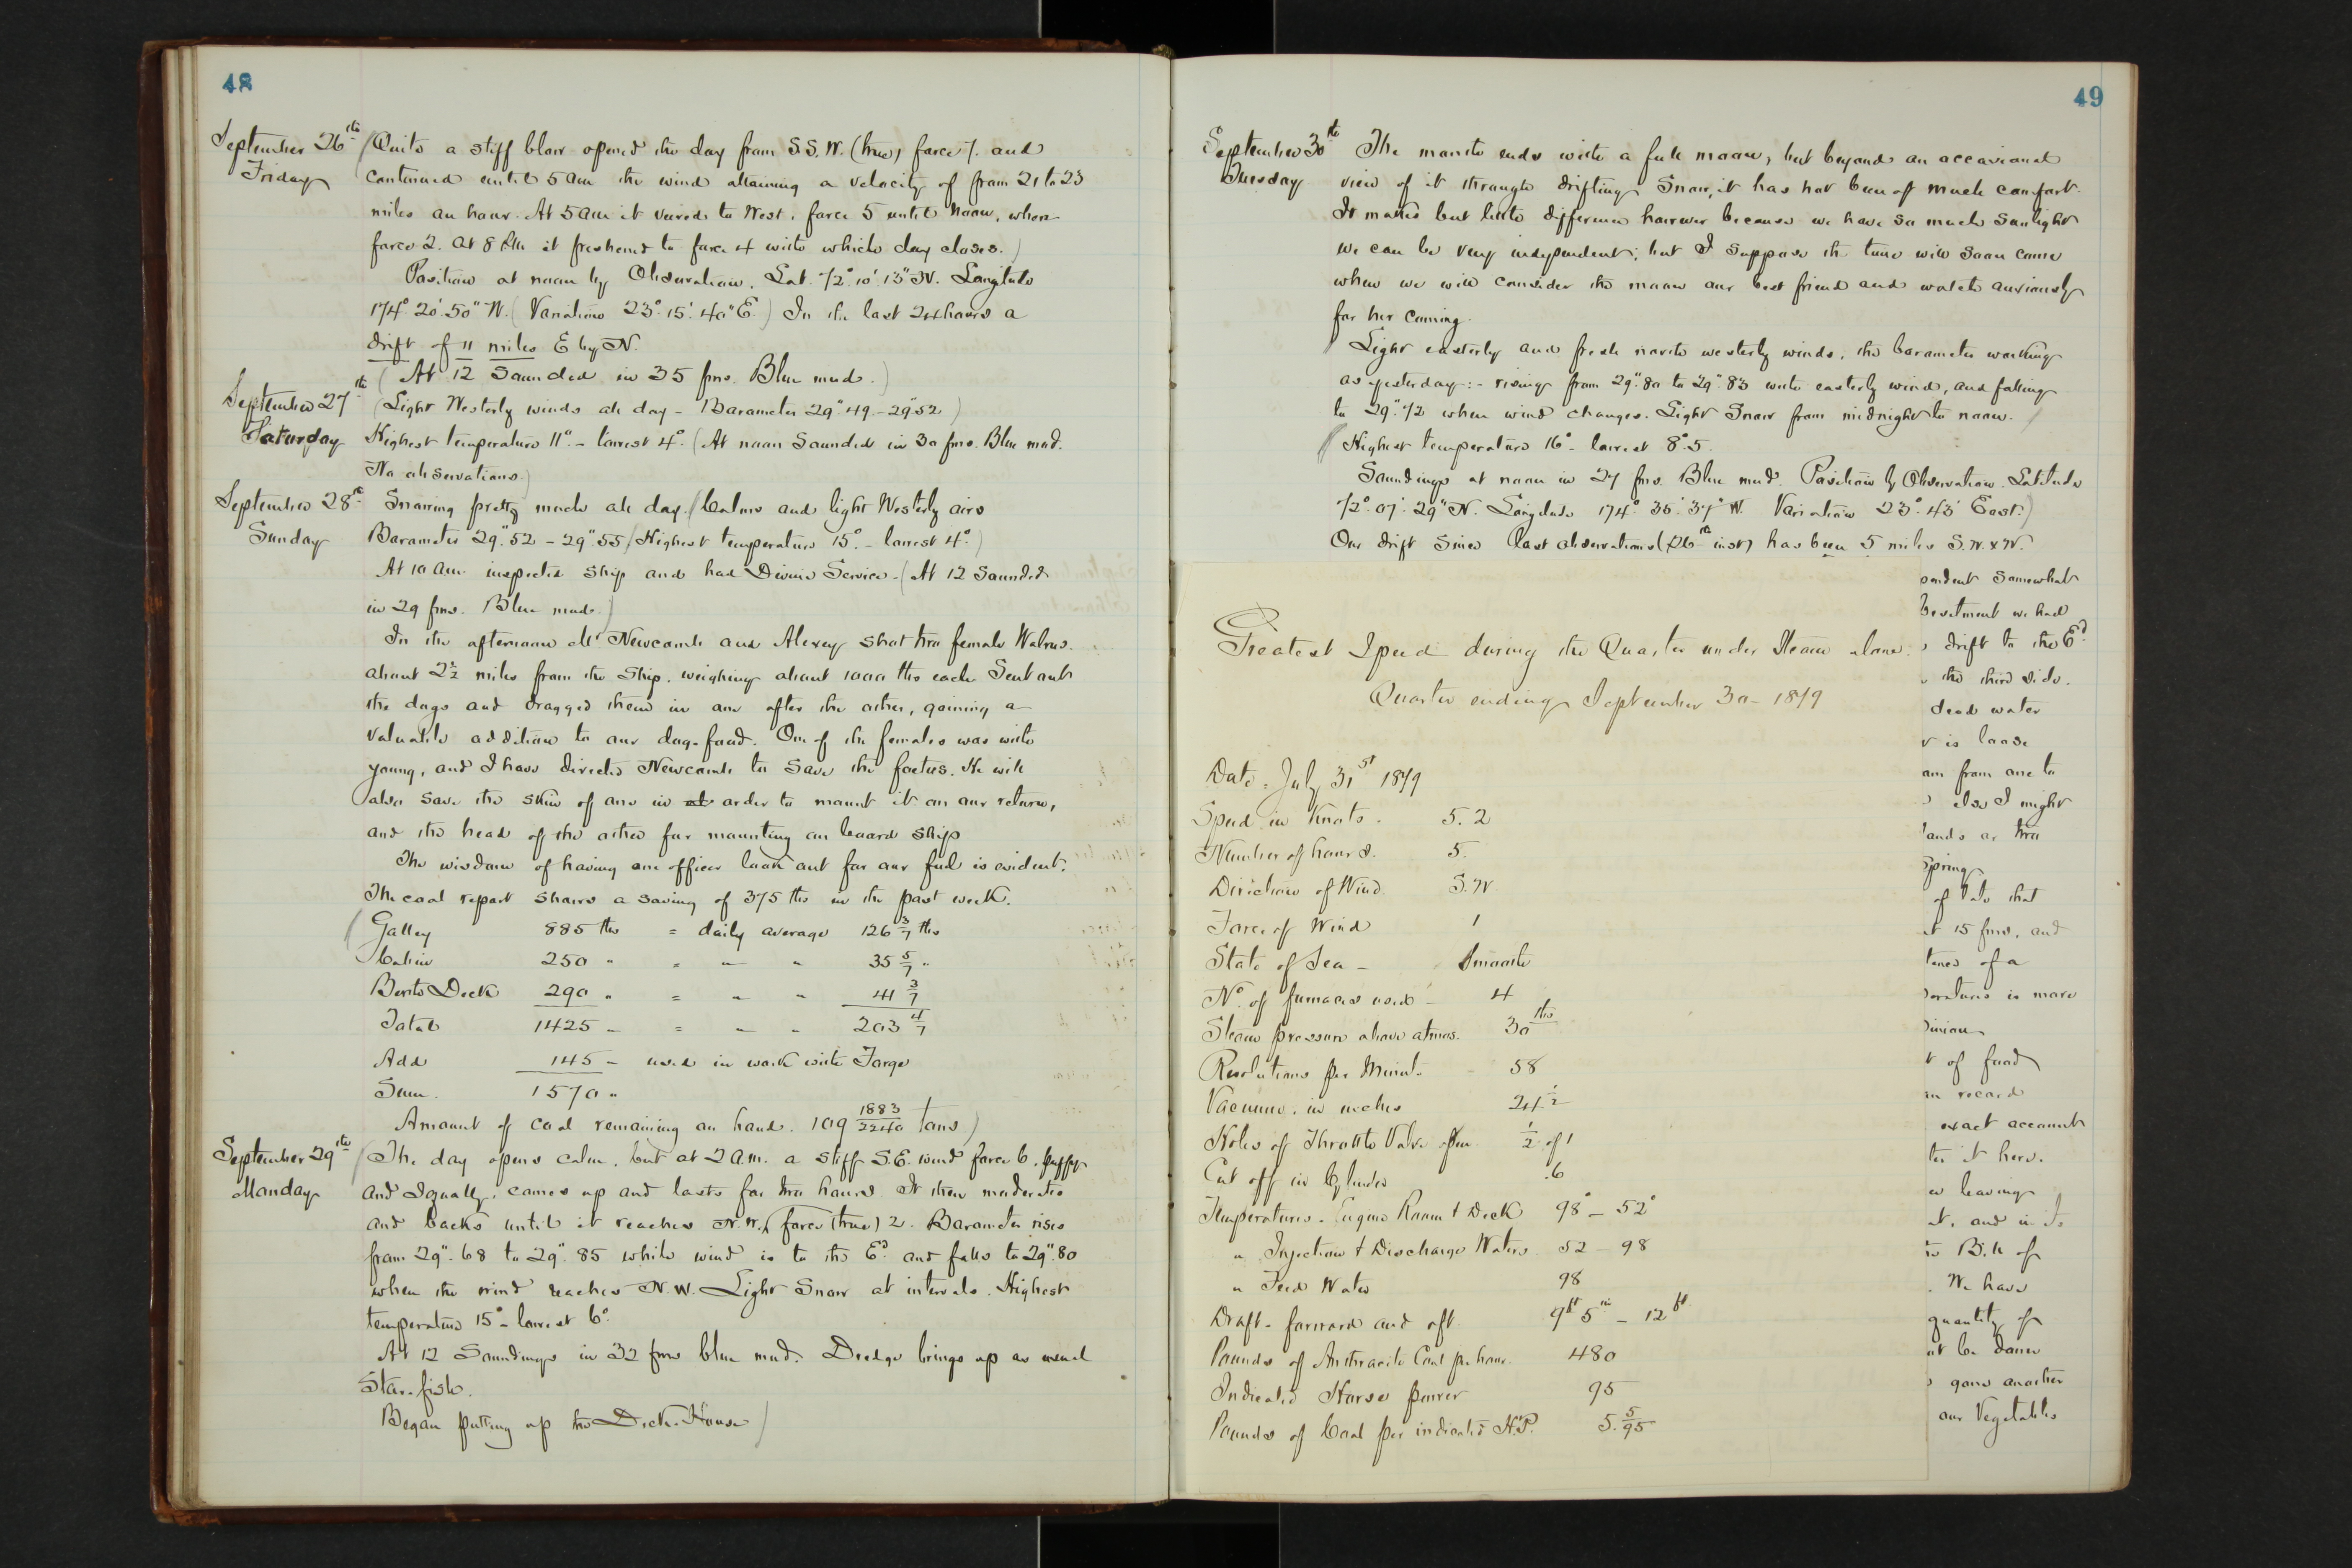 48
September 26th (Quite a stiff blow opened the day from S.S.W. (true) force 7. and
Friday continued until 5 am the wind attaining a velocity of from 21 to 23
miles an hour. At 5 am it veered to West, force 5 until noon, when
force 2. At 8 PM it freshened to force 4 with which day closes.)
Position at noon by Observation. Lat. 72° 10' 13" N. Longitude
174° 20' 50" W. (Variation 23° 15' 40" E.) In the last 24 hours a
drift of 11 miles E by N.
(At 12 Sounded in 35 fms. Blue mud.)
September 27th (Light Westerly winds all day – Barometer 29".49 – 29".52)
Saturday Highest temperature 11° – lowest 4°. (At noon Sounded in 30 fms. Blue mud.
No observations.)
September 28th Snowing pretty much all day. (Calms and light Westerly airs
Sunday Barometer 29".52 – 29".55 (Highest temperature 15° – lowest 4°.)
At 10 am inspected ship and had Divine Service – (At 12 Sounded
in 29 fms. Blue mud.)
In the afternoon Mr Newcomb and Alexey shot two female Walrus.
about 2½ miles from the Ship, weighing about 1000 lbs each. Sent out
the dogs and dragged them in one after the other, gaining a
valuable addition to our dog-food. One of the females was with
young, and I have directed Newcomb to save the foetus. He will
also save the skin of one in order to mount it on our return,
and the head of the other for mounting on board ship
The wisdom of having one officer look out for our fuel is evident.
The coal report shows a saving of 375 lbs in the past week.
(Galley 885 lbs = daily average 126 3/7 lbs
Cabin 250 " = " " 35 5/7 "
Berth Deck 290 " = " " 41 3/7
Total 1425 – = – " 203 4/7
Add 145 – used in work with Forge
Sum. 1570 "
Amount of coal remaining on hand. 109 1883/2240 tons)
September 29th (The day opens calm, but at 2 a.m. a stiff S.E. wind force 6, puffy
Monday and squally, comes up and lasts for two hours. It then moderates
and backs until it reaches N.W. (force (true) 2. Barometer rises
from 29".68 to 29".85 while wind is to the Ed and falls to 29".80
when the wind reaches N.W. Light Snow at intervals. Highest
temperature 15° – lowest 6°.
At 12 Soundings in 32 fms blue mud. Dredge brings up as usual
Star-fish.
Began putting up the Deck-House)
49
September 30th The month ends with a full moon, but beyond an occasional
Tuesday view of it through drifting Snow, it has not been of much comfort.
It makes but little difference however because we have so much sunlight
we can be very independent; but I suppose the time will soon come
when we will consider the moon our best friend and watch anxiously
for her coming.
Light easterly and fresh north westerly winds, the barometer working
as yesterday: – rising from 29".80 to 29".83 with easterly wind, and falling
to 29".72 when wind changes. Light Snow from midnight to noon.)
Highest temperature 16° – lowest 8°.5.
Soundings at noon in 27 fms. Blue mud. Position by Observation. Latitude
72° 07' 29" N. Longitude 174° 35' 37" W. Variation 23° 43' East.)
Our drift since last observations (26th inst) has been 5 miles S.W. x W.
Greatest Speed during the Quarter under Steam alone.
Quarter ending September 30 – 1879
Date – July 31st 1879
Speed in Knots. 5.2
Number of hours. 5.
Direction of Wind. S.W.
Force of Wind 1
State of Sea – Smooth
No. of furnaces used – 4
Steam pressure above atmos. 30 lbs
Revolutions per Minute – 58
Vacuum, in inches 24½
Holes of Throttle Valve open ½ of 1
Cut off in Cylinder .6
Temperatures – Engine Room & Deck 98° – 52°
" Injection & Discharge Water 52 – 98
" Feed Water 98
Draft – forward and aft. 9ft 5in – 12ft
Pounds of Anthracite Coal per hour 480
Indicated Horse power 95
Pounds of Coal per indicated H.P. 5. 5/95
pendent somewhat
we had
drift to the Ed
the third side.
dead water
is loose
am from one to
else I might
lands or two
Spring
of late that
15 fms. and
of a
is more
of food
record
exact account
it here.
leaving
and in its
of
We have
quantity of
be done
gone another
our Vegetables